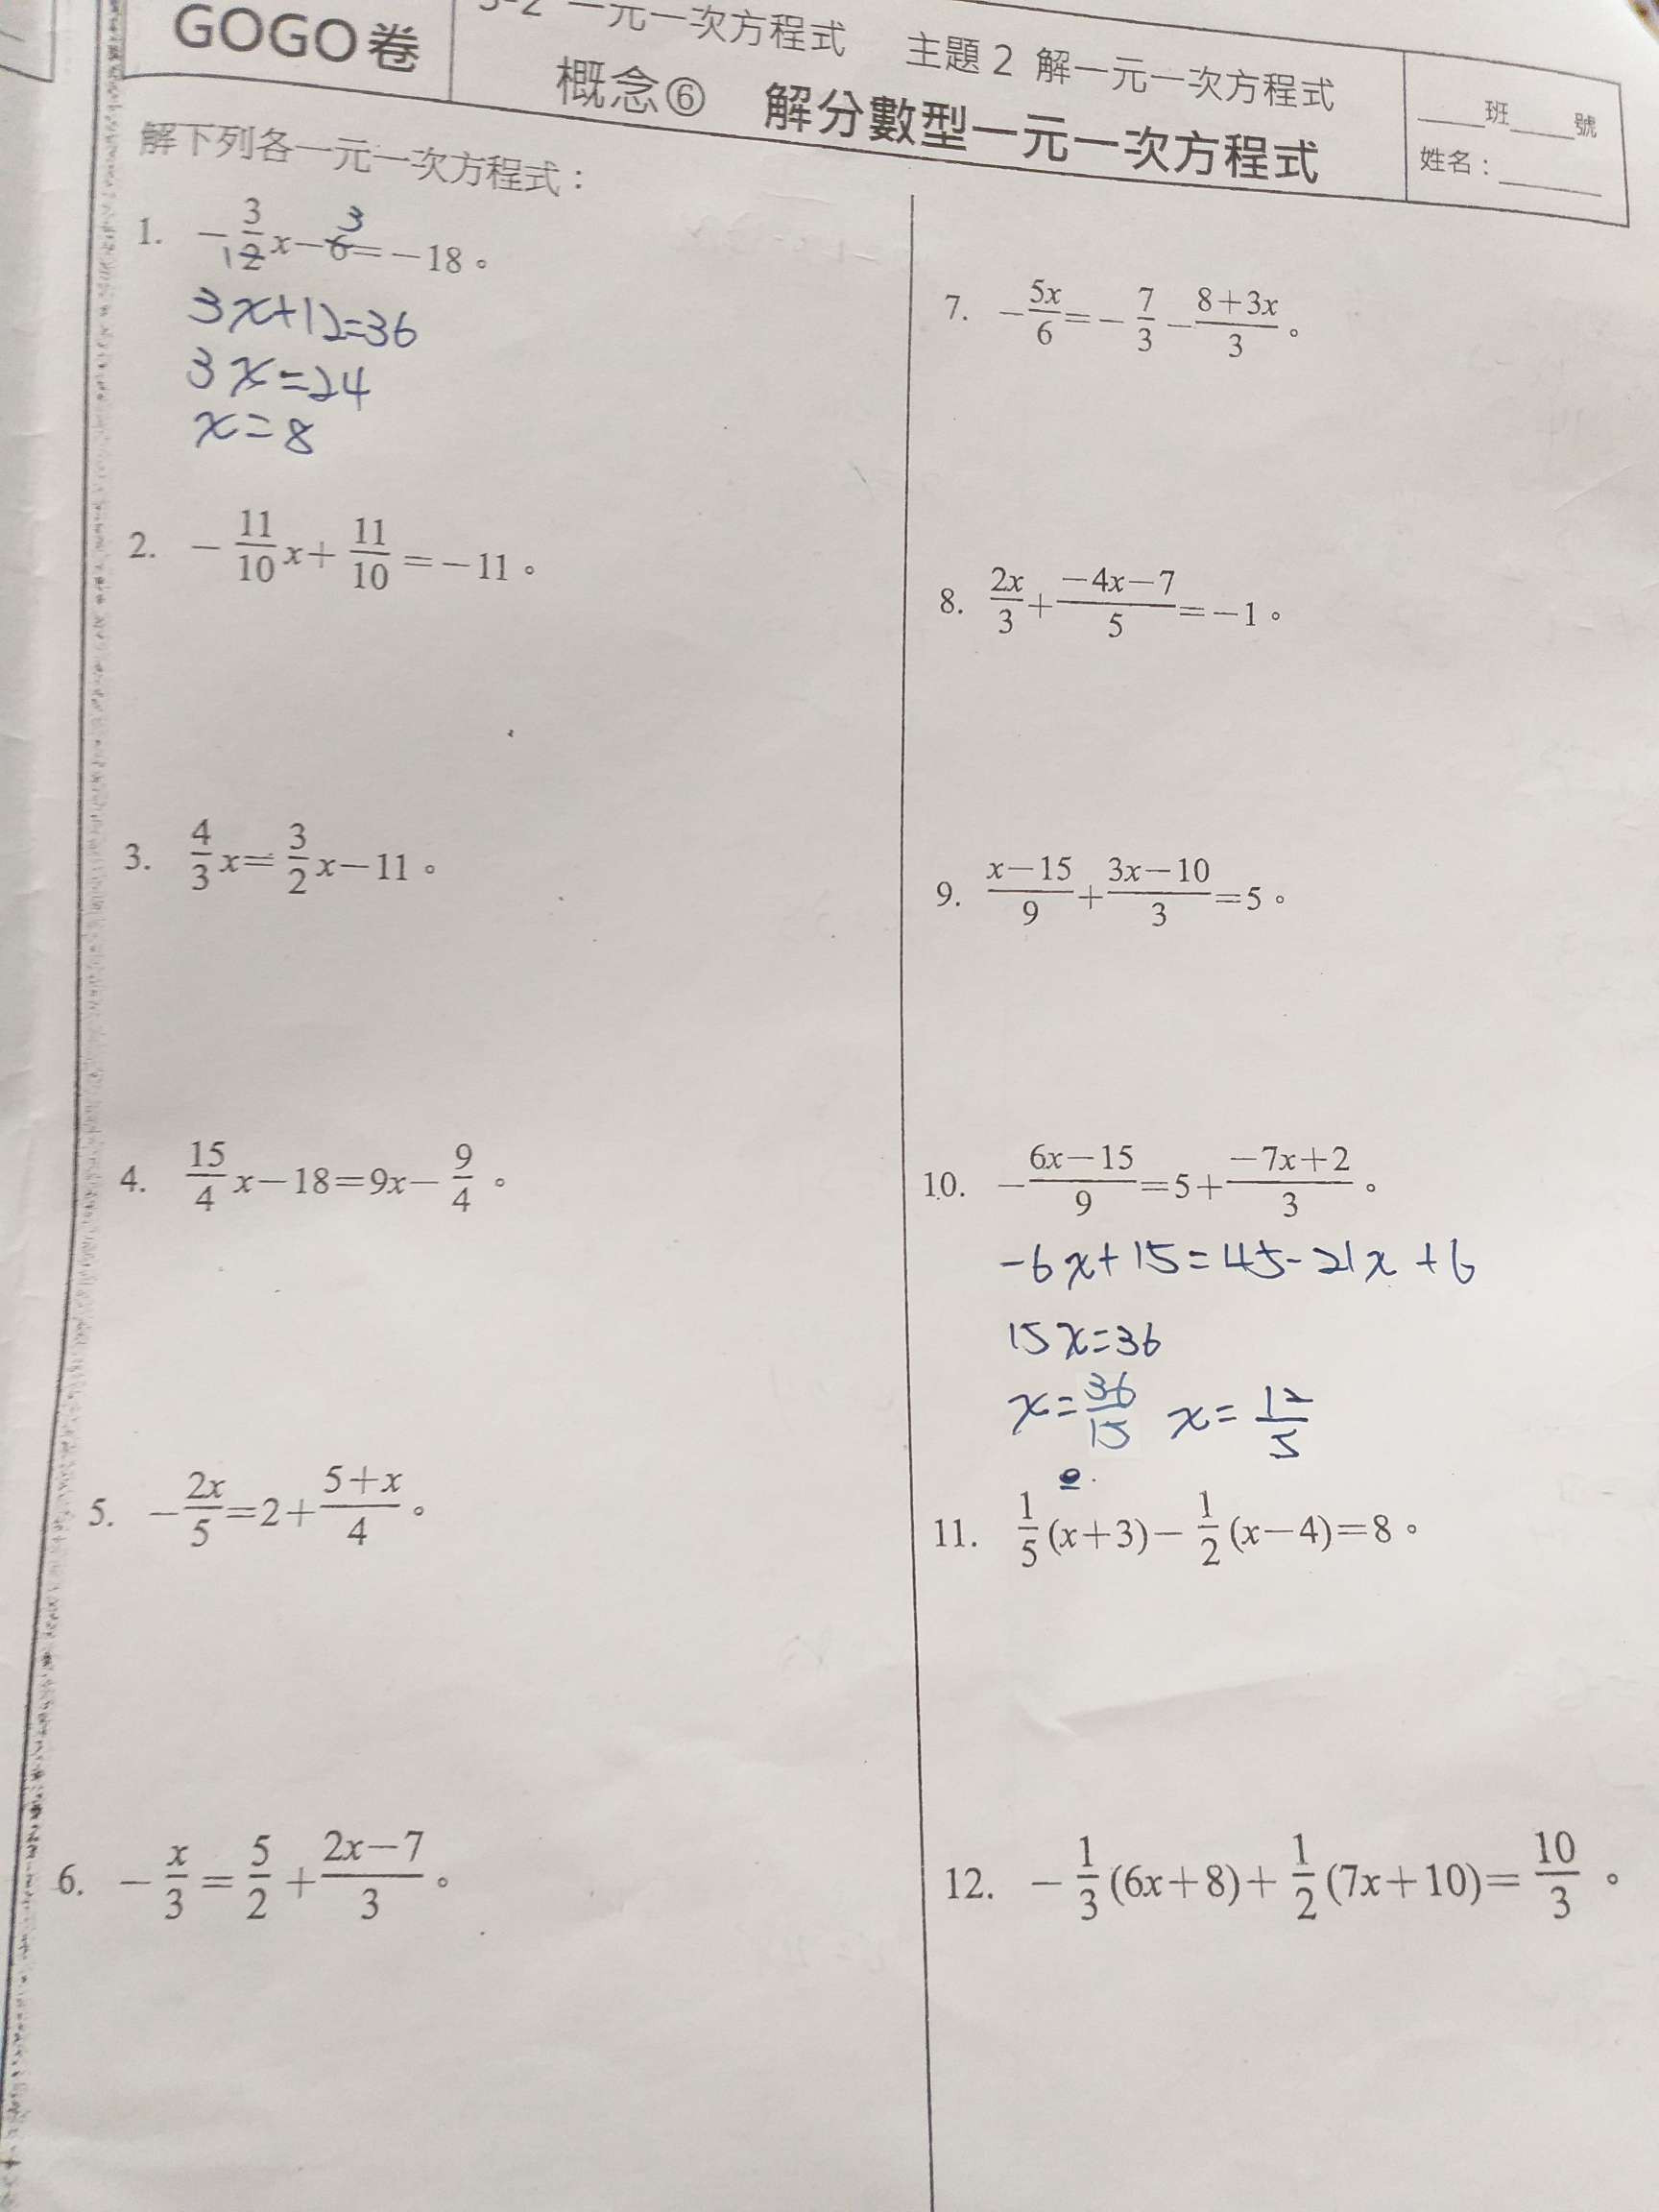 GOGO卷
3-2 一元一次方程式 主題2 解一元一次方程式
概念⑥ 解分數型一元一次方程式
____班____號
姓名：______
解下列各一元一次方程式：
1. -3/12x-6=-18。
3
3x+12=36
3x=24
x=8
2. -11/10x+11/10=-11。
3. 4/3x=3/2x-11。
4. 15/4x-18=9x-9/4。
5. -2x/5=2+(5+x)/4。
6. -x/3=5/2+(2x-7)/3。
7. -5x/6=-7/3-(8+3x)/3。
8. 2x/3+(-4x-7)/5=-1。
9. (x-15)/9+(3x-10)/3=5。
10. -(6x-15)/9=5+(-7x+2)/3。
-6x+15=45-21x+6
15x=36
x=36/15 x=12/5
11. 1/5(x+3)-1/2(x-4)=8。
12. -1/3(6x+8)+1/2(7x+10)=10/3。